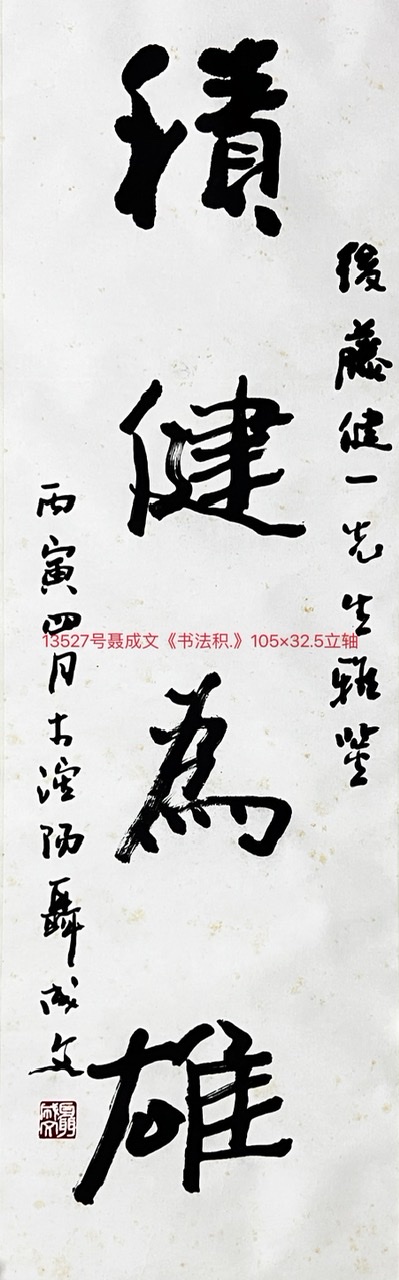 後藤健一先生雅鑒
積健為雄
丙寅四月於瀋陽聶成文
13527号聂成文《书法积.》105×32.5立轴